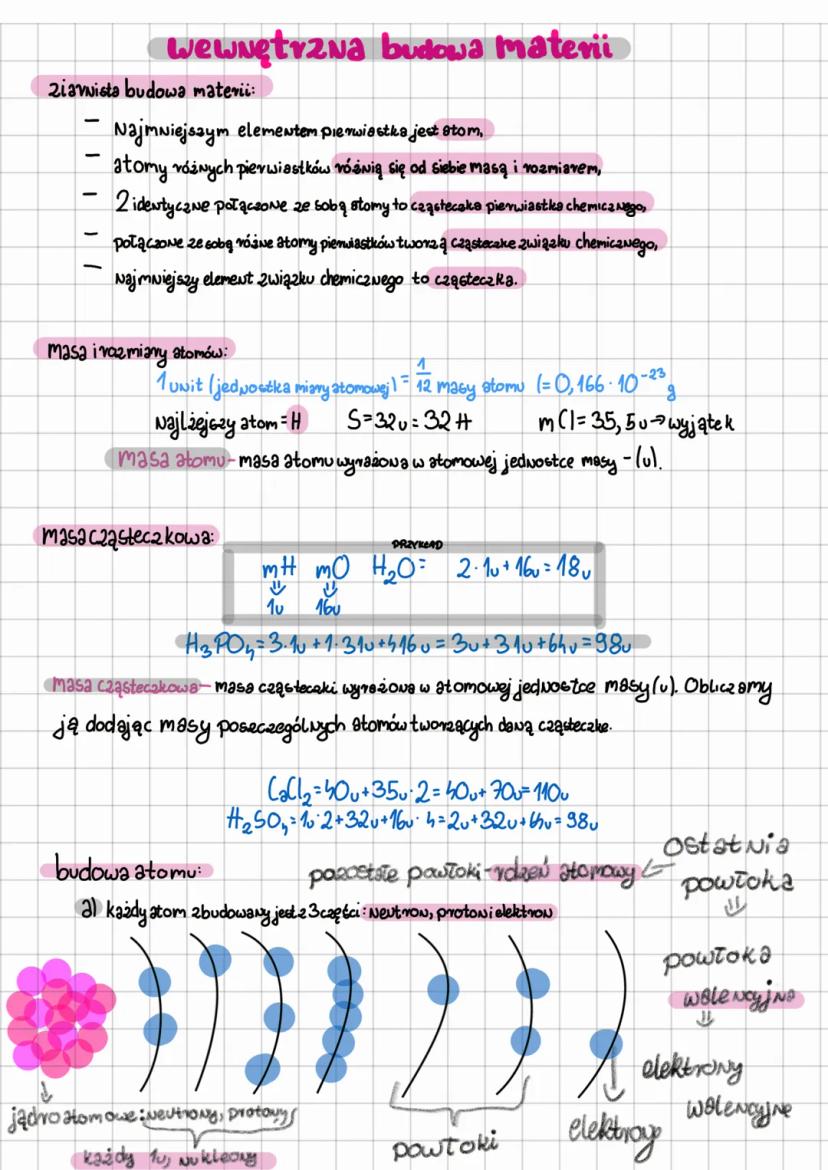 wewnętrzna budowa materii
ziarnista budowa materii:
- Najmniejszym elementem pierwiastka jest atom,
- atomy różnych pierwiastków różnią się od siebie masą i rozmiarem,
- 2 identyczne połączone ze sobą atomy to cząsteczka pierwiastka chemicznego,
- połączone ze sobą różne atomy pierwiastków tworzą cząsteczke związku chemicznego,
- Najmniejszy element związku chemicznego to cząsteczka.
masa i rozmiary atomów:
1 unit (jednostka miary atomowej) = 1/12 masy atomu (= 0,166 · 10⁻²³ g
Najlżejszy atom = H S = 32u = 32 H mCl = 35,5u → wyjątek
masa atomu - masa atomu wyrażona w atomowej jednostce masy - (u).
masa cząsteczkowa:
PRZYKŁAD
mH mO H₂O = 2·1u + 16u = 18u
⇓ ⇓
1u 16u
H₃PO₄ = 3·1u + 1·31u + 4·16u = 3u + 31u + 64u = 98u
masa cząsteczkowa - masa cząsteczki wyrażona w atomowej jednostce masy (u). Obliczamy
ją dodając masy poszczególnych atomów tworzących daną cząsteczke.
CaCl₂ = 40u + 35u·2 = 40u + 70u = 110u
H₂SO₄ = 1u·2 + 32u + 16u·4 = 2u + 32u + 64u = 98u
budowa atomu:
pozostałe powłoki - rdzeń atomowy ← ostatnia
powłoka
⇓
a) każdy atom zbudowany jest z 3 części: neutron, proton i elektron
powłoka
walencyjna
⇓
elektrony
walencyjne
jądro atomowe: neutrony, protony
każdy 1u, nukleony
powłoki
elektrony